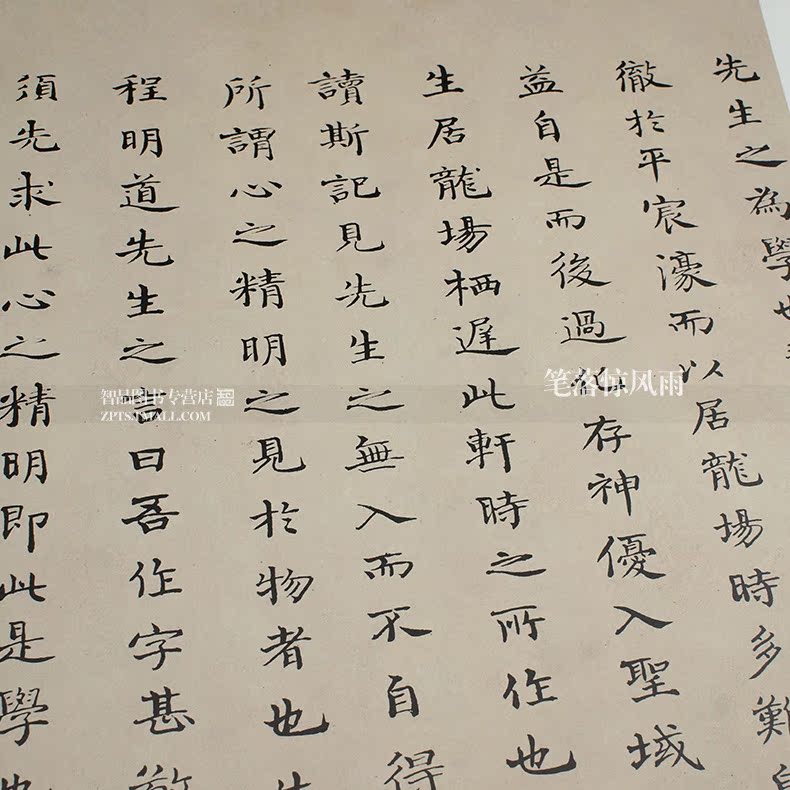 先生之為學也
徹於平宸濠而以居龍場時多難
益自是而後過化存神優入聖域
生居龍場栖遲此軒時之所作也
讀斯記見先生之無入而不自得
所謂心之精明之見於物者也
程明道先生之書曰吾作字甚敬
須先求此心之精明即此是學也
智品图书专营店
ZPTS.TMALL.COM
笔落惊风雨